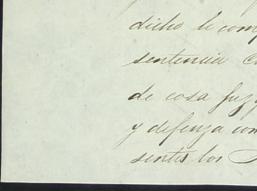 dicho le comp
sentencia c
de cosa juzg
y defenza con
sentes los